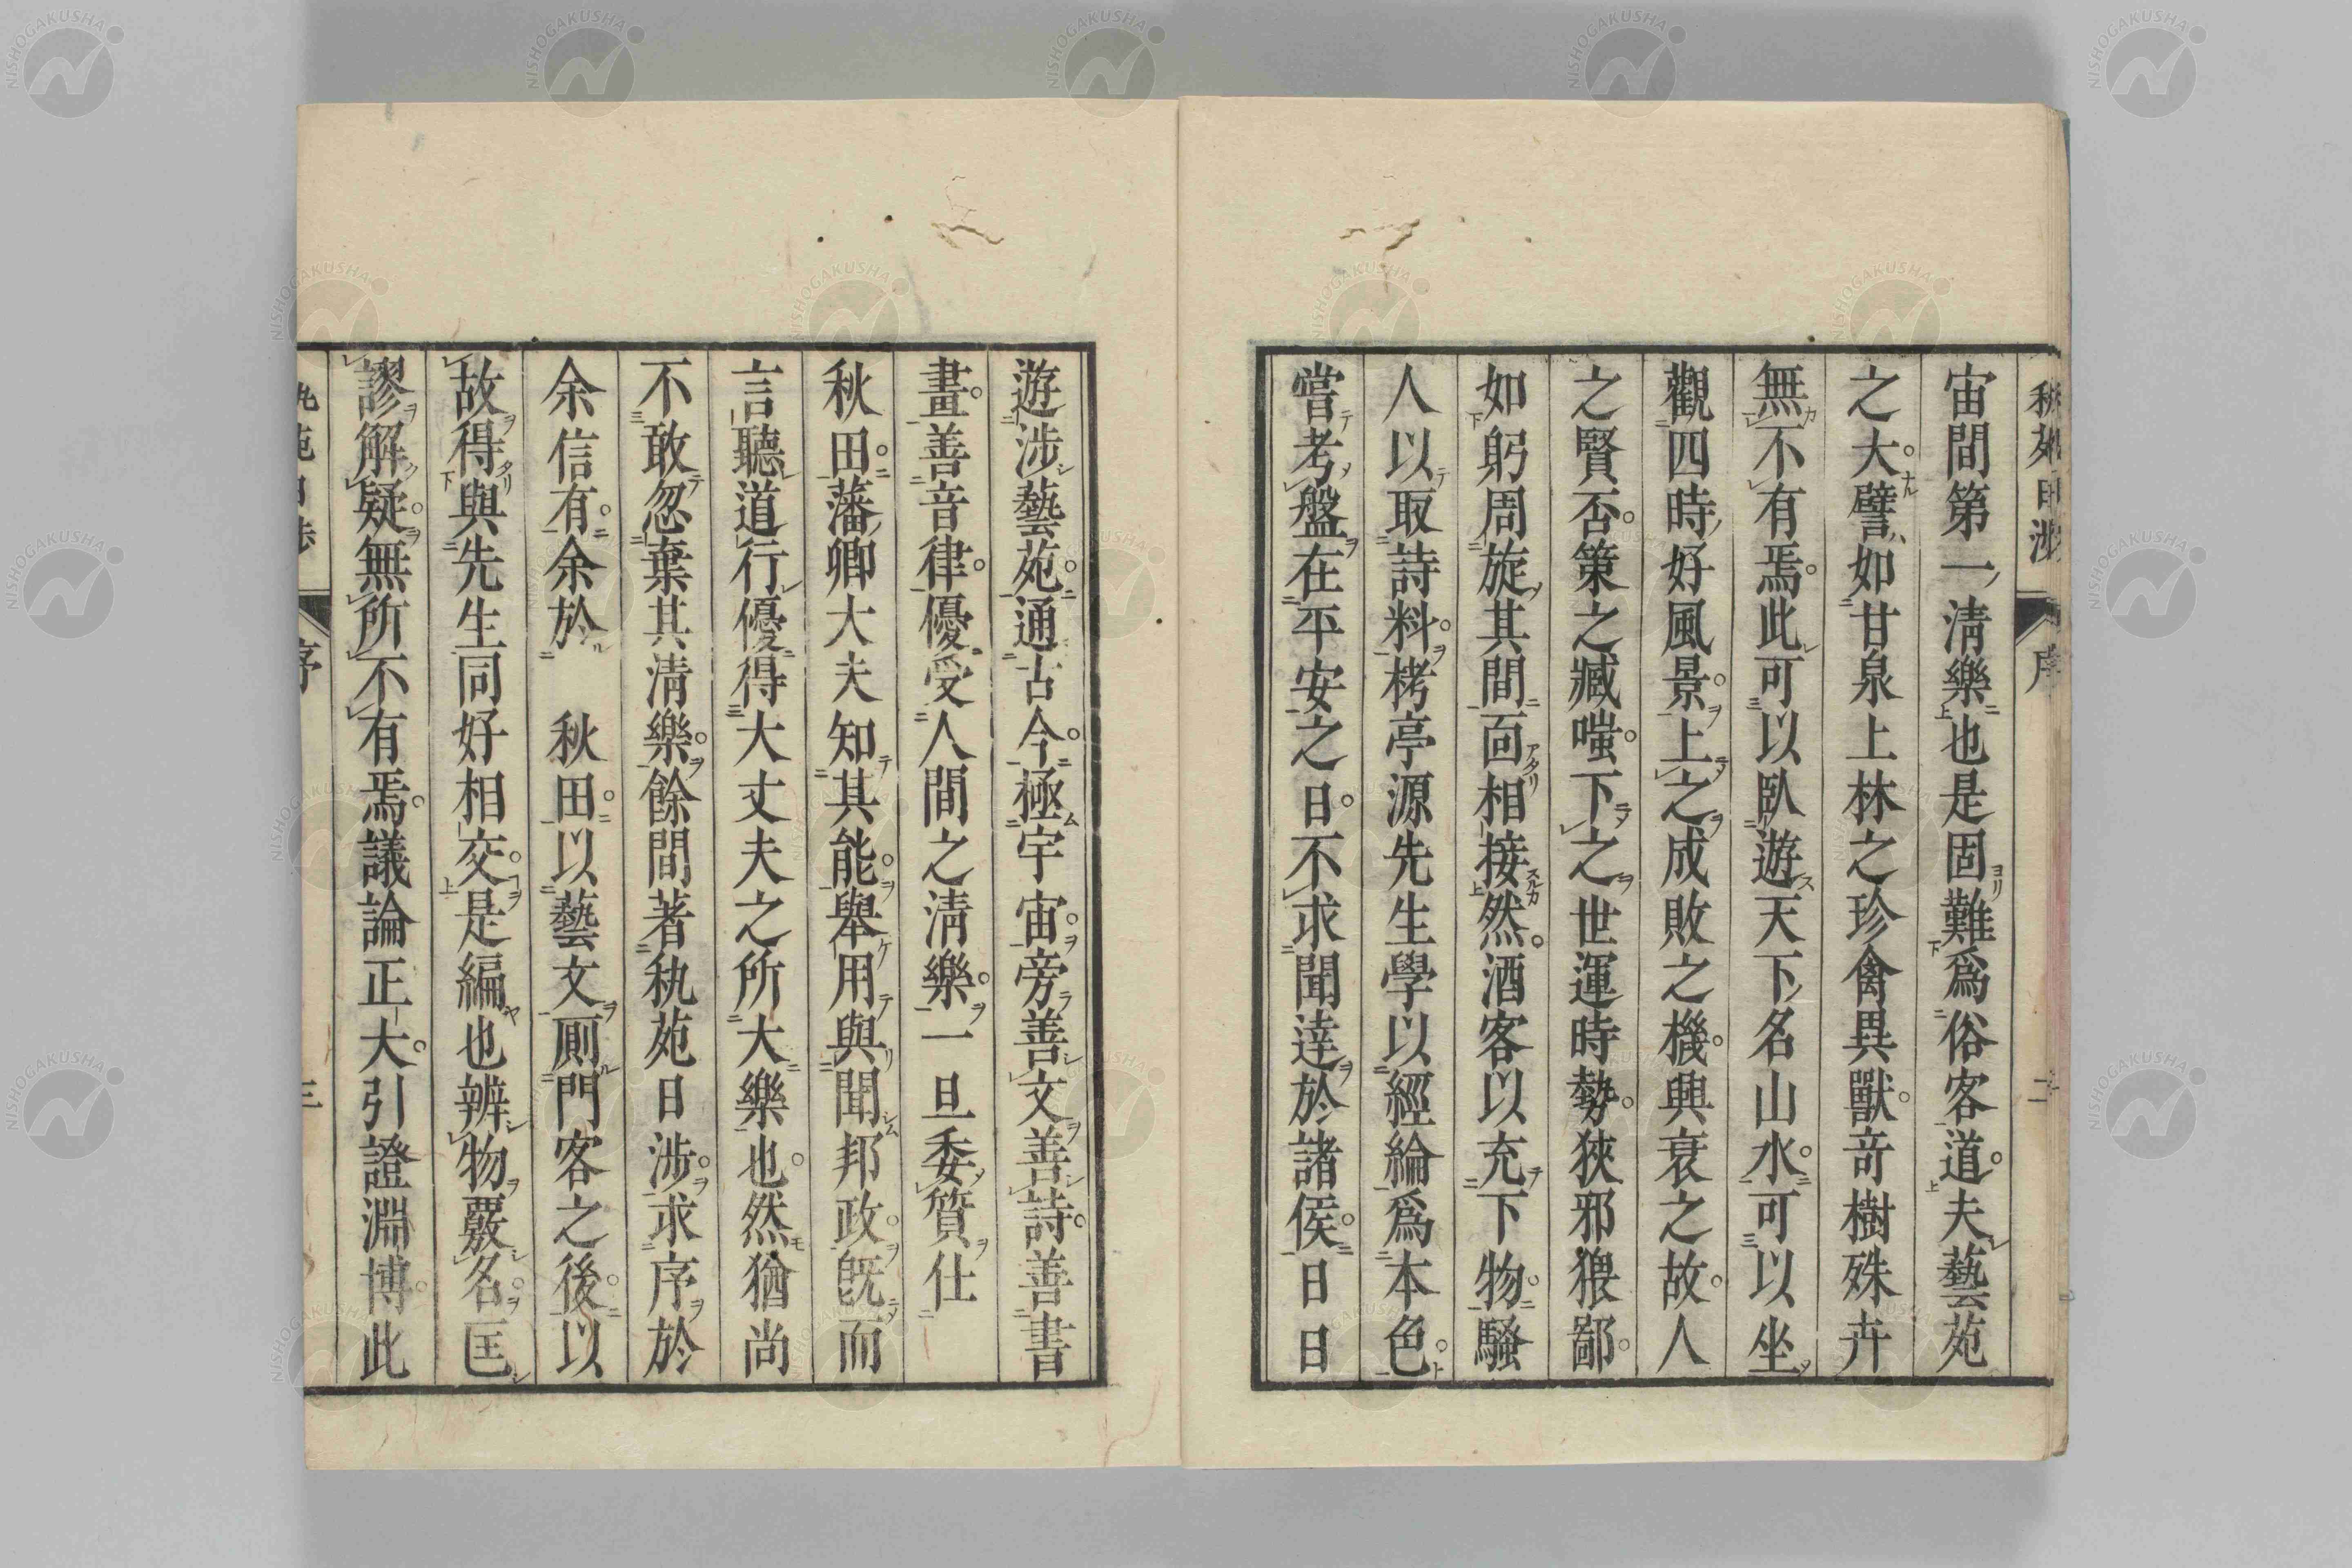 宙間第一清樂也是固難爲俗客道夫藝苑
之大譬如甘泉上林之珍禽異獸奇樹殊卉
無不有焉此可以臥遊天下名山水可以坐
觀四時好風景上之成敗之機興衰之故人
之賢否策之臧嗤下之世運時勢狹邪猥鄙
如躬周旋其間面相接然酒客以充下物騷
人以取詩料栲亭源先生學以經綸爲本色
嘗考盤在平安之日不求聞達於諸侯日日
遊涉藝苑通古今極宇宙旁善文善詩善書
畫善音律優受人間之清樂一旦委質仕
秋田藩卿大夫知其能舉用與聞邦政既而
言聽道行優得大丈夫之所大樂也然猶尚
不敢忽棄其清樂餘間著秇苑日涉求序於
余信有余於 秋田以藝文厠門客之後以
故得與先生同好相交是編也辨物覈名匡
謬解疑無所不有焉議論正大引證淵博此
序
三